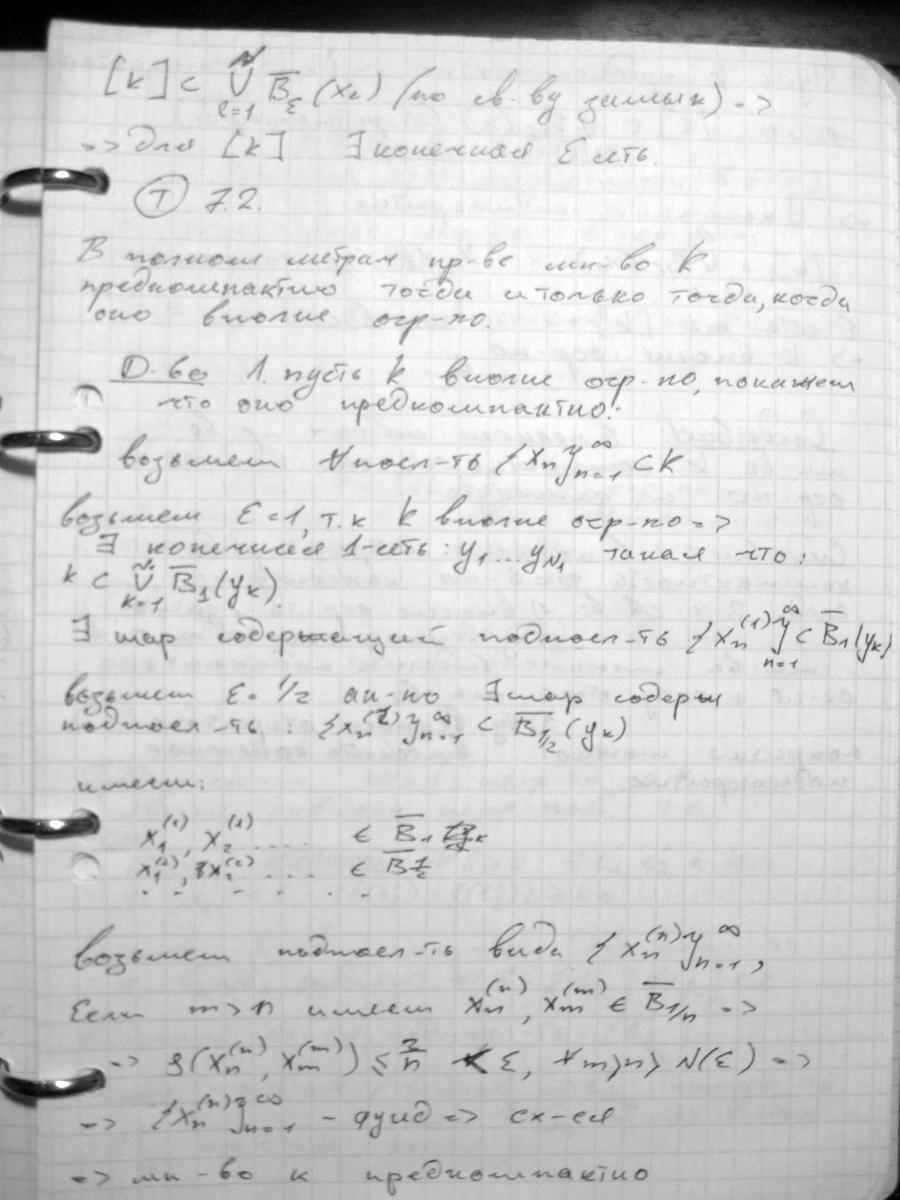 [k] ⊂ ⋃_{i=1}^{N} B̅_ε(x_i) (по св-ву замык) =>
=> для [k] ∃ конечная ε сеть.
Т 7.2.
В полном метрич пр-ве мн-во k
предкомпактно тогда и только тогда, когда
оно вполне огр-но.
Д-во 1. пусть k вполне огр-но, покажем
что оно предкомпактно:
возьмем ∀ посл-ть {x_n}_{n=1}^∞ ⊂ K
возьмем ε=1, т.к k вполне огр-но =>
∃ конечная 1-сеть: y_1...y_{N_1} такая что:
k ⊂ ⋃_{k=1}^{N_1} B̅_1(y_k)
∃ шар содержащий подпосл-ть {x_n^{(1)}}_{n=1}^∞ ⊂ B̅_1(y_k)
возьмем ε = 1/2 ан-но ∃ шар содерж
подпосл-ть: {x_n^{(2)}}_{n=1}^∞ ⊂ B̅_{1/2}(y_k)
имеем:
x_1^{(1)}, x_2^{(1)} .... ∈ B̅_1
x_1^{(2)}, x_2^{(2)} .... ∈ B̅_{1/2}
. . . . . .
возьмем подпосл-ть вида {x_n^{(n)}}_{n=1}^∞,
Если m>n имеем x_n^{(n)}, x_m^{(m)} ∈ B̅_{1/n} =>
=> ρ(x_n^{(n)}, x_m^{(m)}) ≤ 2/n < ε, ∀ m>n> N(ε) =>
=> {x_n^{(n)}}_{n=1}^∞ - фунд => сх-ся
=> мн-во k предкомпактно